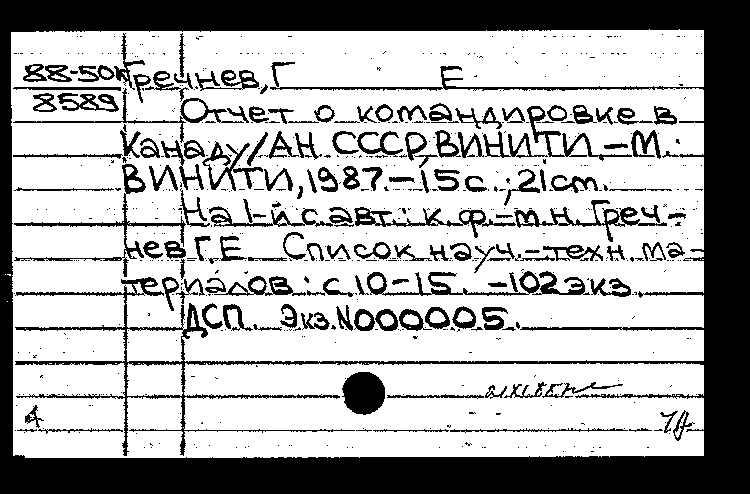 88-50к Гречнев, Г Е
8589 Отчет о командировке в
Канаду/АН СССР, ВИНИТИ.-М.:
ВИНИТИ, 1987.-15с.; 21см.
На 1-й с. авт.: к.ф.-т.н. Греч-
нев Г.Е Список науч.-техн. ма-
териалов: с.10-15. -102экз.
ДСП. Экз.N000005.
4